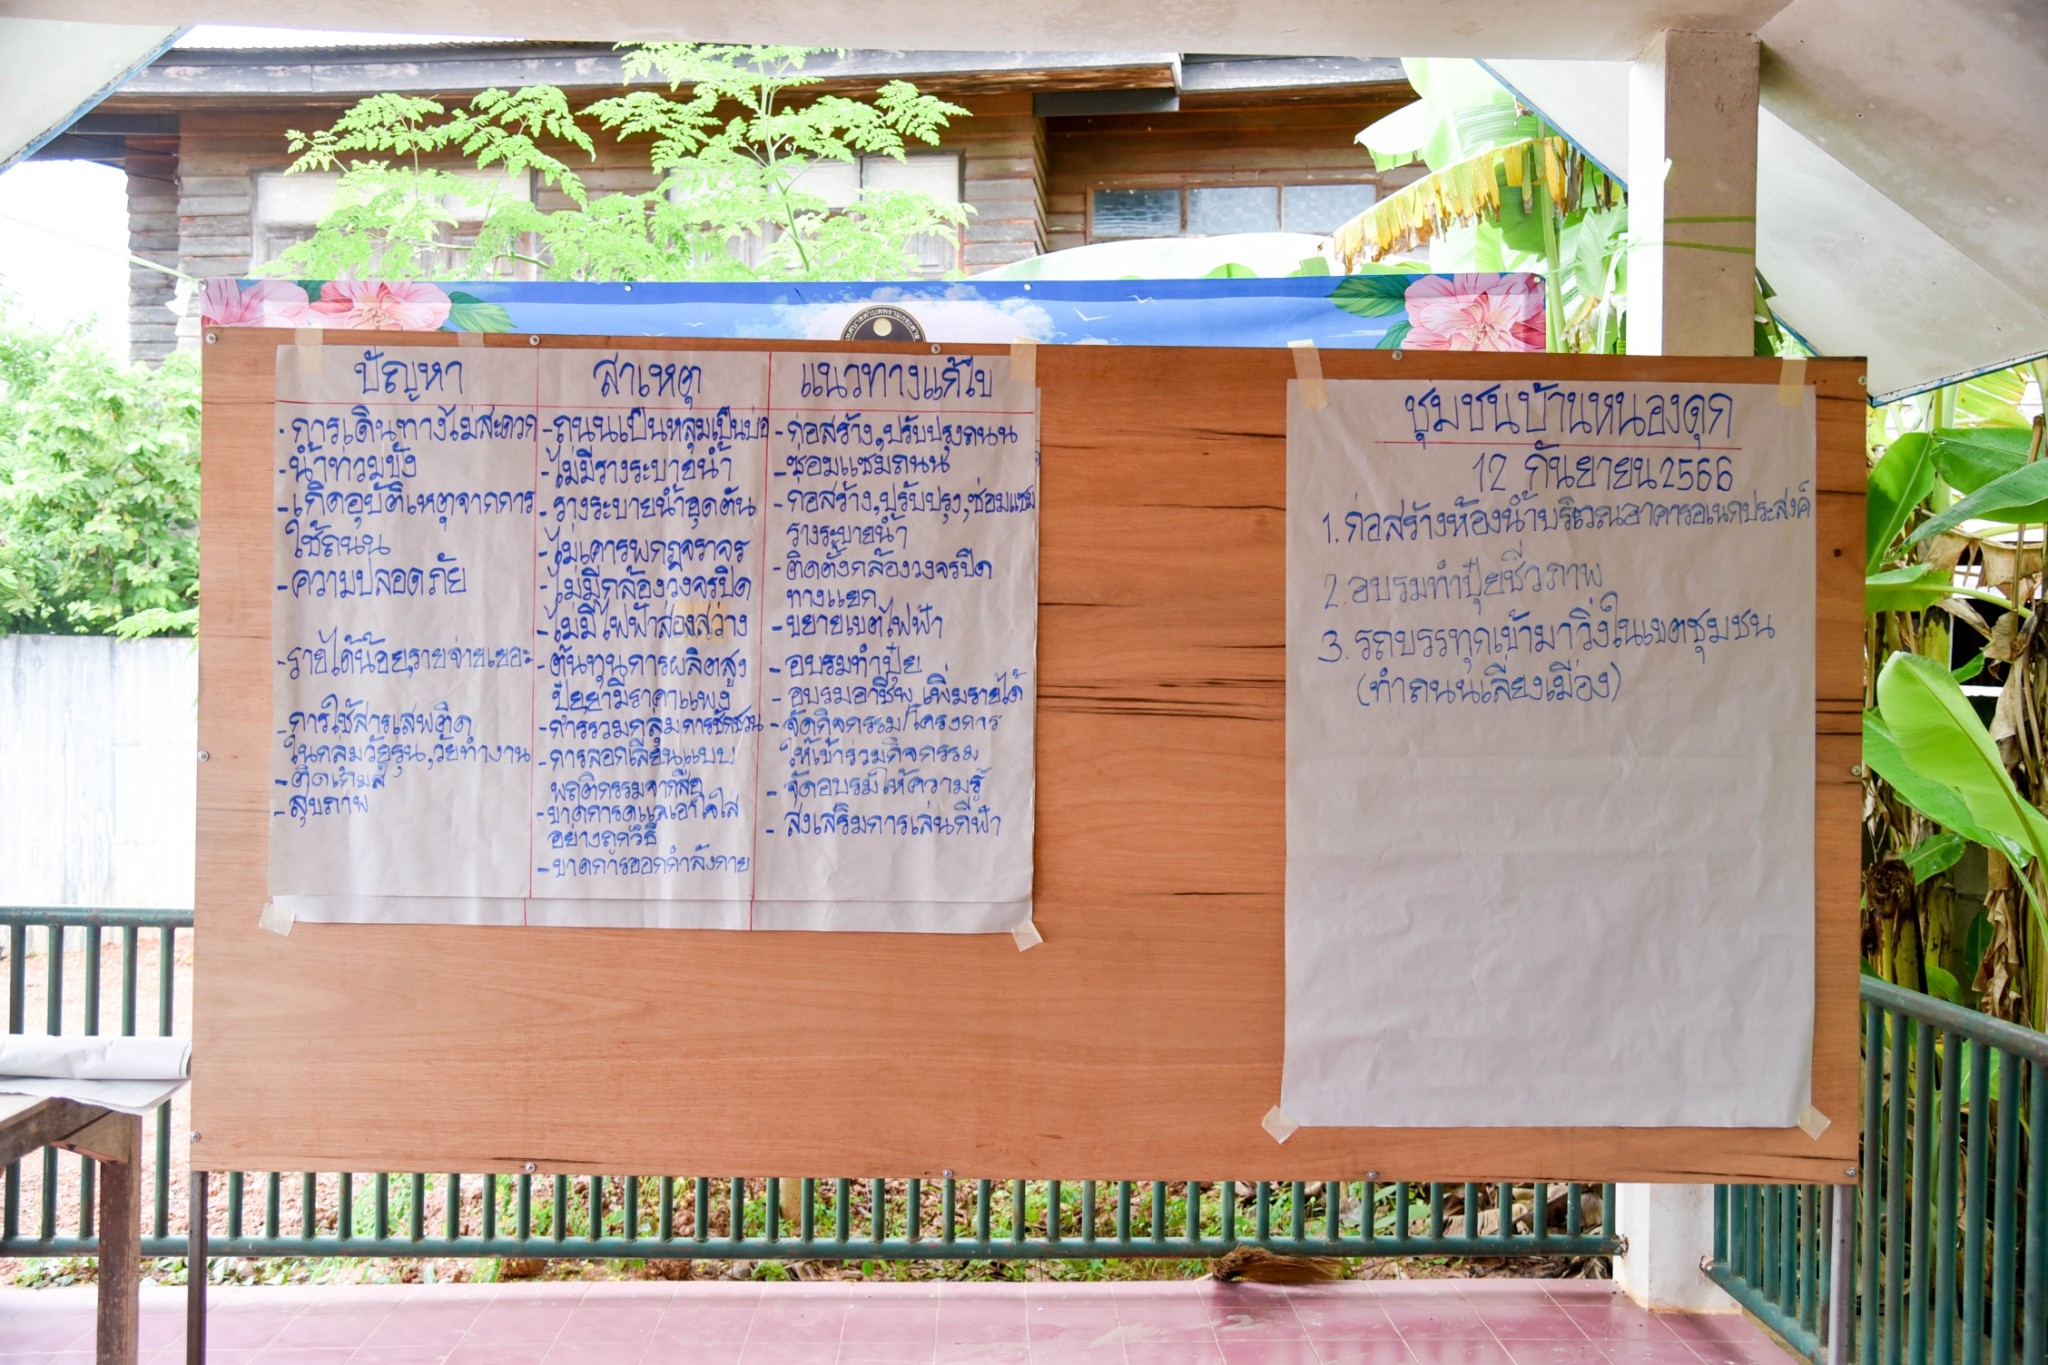 ปัญหา
- การเดินทางไม่สะดวก
- น้ำท่วมขัง
- เกิดอุบัติเหตุจากการ
ใช้ถนน
- ความปลอดภัย
- รายได้น้อย,รายจ่ายเยอะ
- การใช้สารเสพติด
ในกลุ่มวัยรุ่น,วัยทำงาน
- ติดเกมส์
- สุขภาพ
สาเหตุ
- ถนนเป็นหลุมเป็นบ่อ
- ไม่มีรางระบายน้ำ
- รางระบายน้ำอุดตัน
- ไม่เคารพกฎจราจร
- ไม่มีกล้องวงจรปิด
- ไม่มีไฟฟ้าส่องสว่าง
- ต้นทุนการผลิตสูง
ปุ๋ยยามีราคาแพง
- การรวมกลุ่มการชักชวน
- การลอกเลียนแบบ
พฤติกรรมจากสื่อ
- ขาดการดูแลเอาใจใส่
อย่างถูกวิธี
- ขาดการออกกำลังกาย
แนวทางแก้ไข
- ก่อสร้าง,ปรับปรุงถนน
- ซ่อมแซมถนน
- ก่อสร้าง,ปรับปรุง,ซ่อมแซม
รางระบายน้ำ
- ติดตั้งกล้องวงจรปิด
ทางแยก
- ขยายเขตไฟฟ้า
- อบรมทำปุ๋ย
- อบรมอาชีพ เพิ่มรายได้
- จัดกิจกรรม/โครงการ
ให้เข้าร่วมกิจกรรม
- จัดอบรมให้ความรู้
- ส่งเสริมการเล่นกีฬา
ชุมชนบ้านหนองดุก
12 กันยายน 2566
1. ก่อสร้างห้องน้ำบริเวณอาคารอเนกประสงค์
2. อบรมทำปุ๋ยชีวภาพ
3. รถบรรทุกเข้ามาวิ่งในเขตชุมชน
(ทำถนนเลี่ยงเมือง)